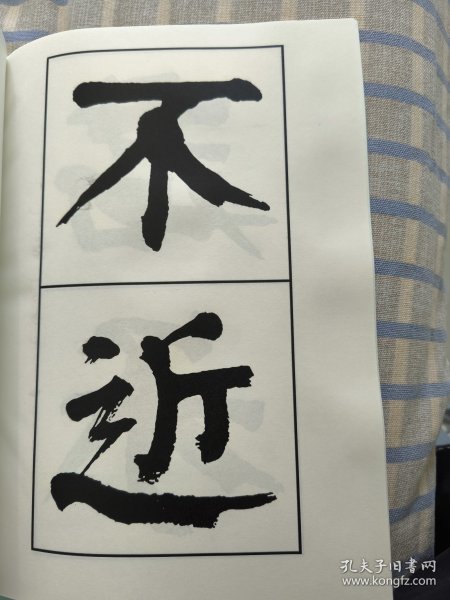 不
近
孔夫子旧书网
www.kongfz.com